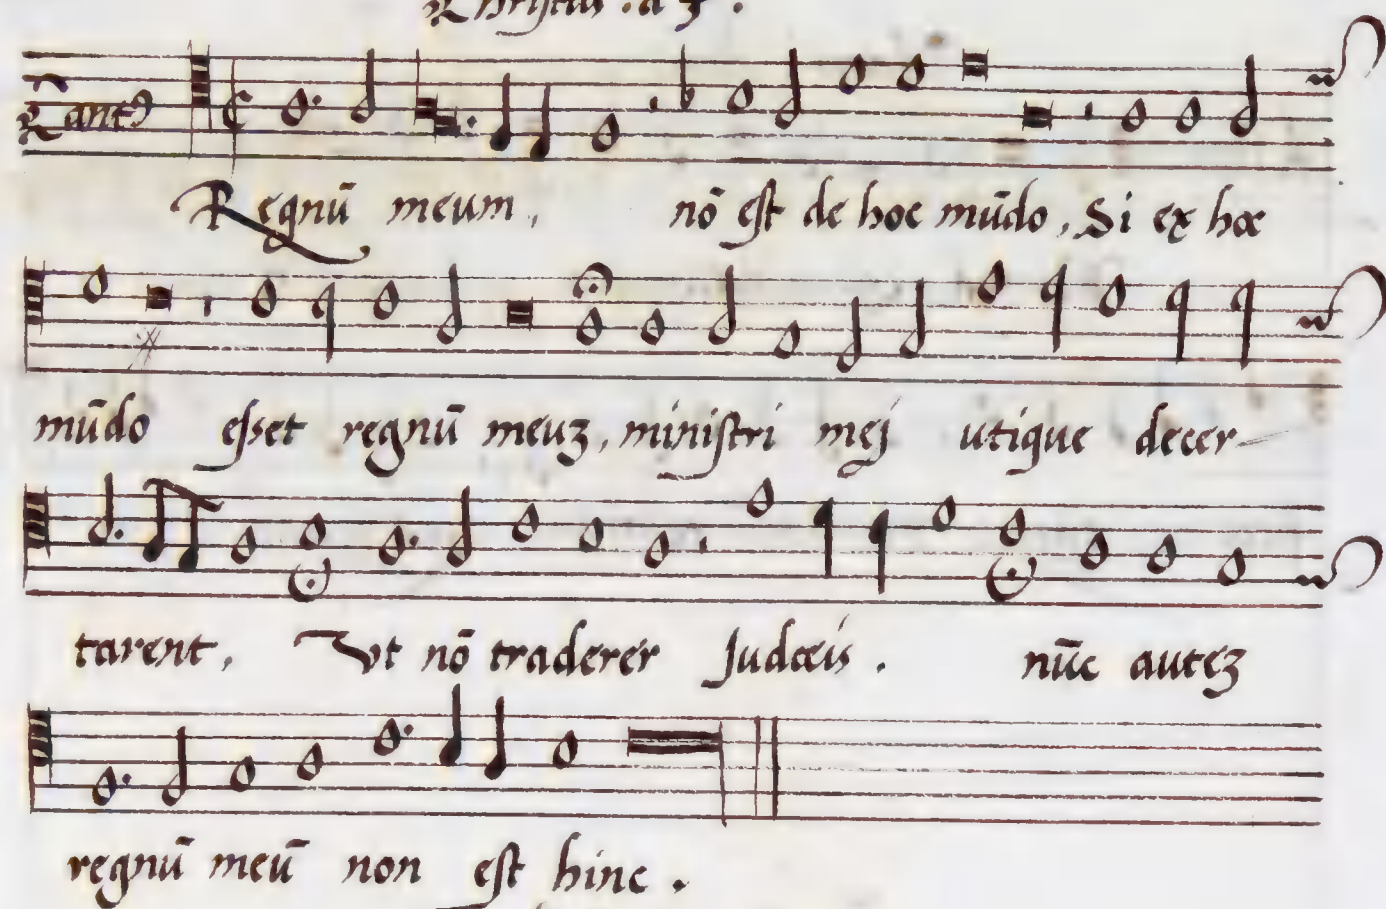 Christus . a 3 .
Cantꝰ
Regnū meum, nō est de hoc mūdo, Si ex hoc
mūdo esset regnū meuʒ, ministri mej utique decer-
tarent, Vt nō traderer Judæis . nūc auteʒ
regnū meū non est hinc .